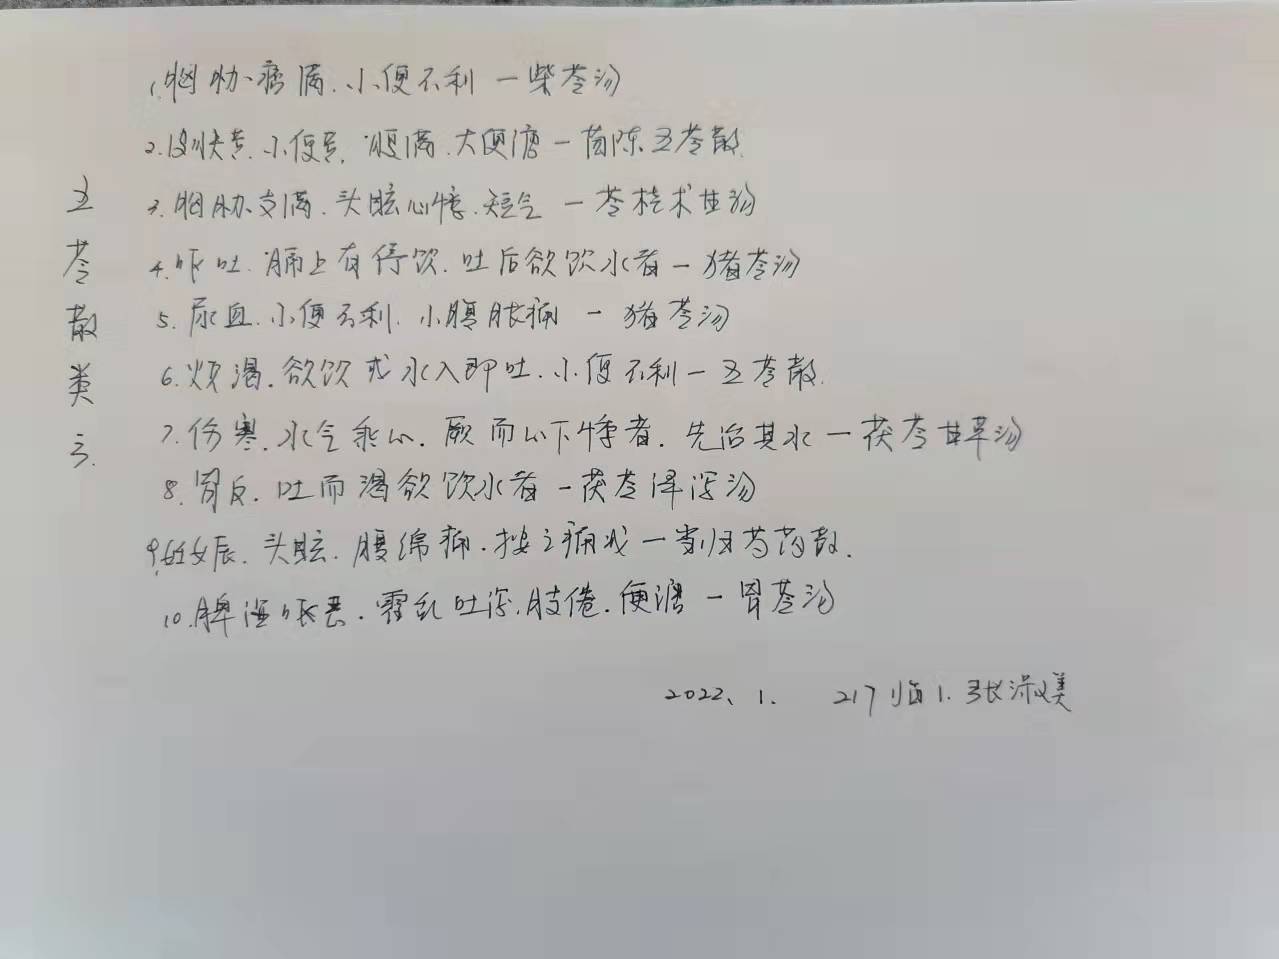 五苓散类方
1.胸胁痞满.小便不利一柴苓汤
2.皮肤黄.小便黄.腹满.大便溏一茵陈五苓散.
3.胸胁支满.头眩心悸.短气一苓桂术甘汤
4.呕吐.膈上有停饮.吐后欲饮水者一猪苓汤
5.尿血.小便不利.小腹胀痛一猪苓汤
6.烦渴.欲饮或水入即吐.小便不利一五苓散.
7.伤寒.水气乘心.厥而心下悸者.先治其水一茯苓甘草汤
8.胃反.吐而渴欲饮水者一茯苓泽泻汤
9.妊娠.头眩.腹绵痛.按之痛减一当归芍药散.
10.脾湿呕恶.霍乱吐泻.肢倦.便溏一胃苓汤
2022、1. 217临1.张淑美